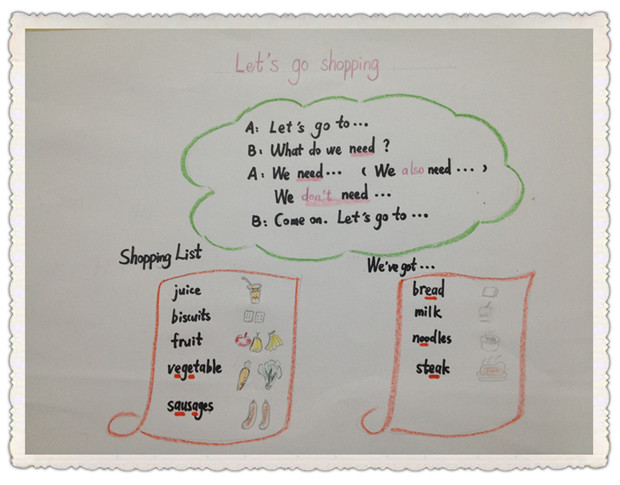 Let's go shopping
A: Let's go to...
B: What do we need?
A: We need... ( We also need...)
We don't need...
B: Come on. Let's go to...
Shopping List
juice
biscuits
fruit
vegetable
sausages
We've got...
bread
milk
noodles
steak